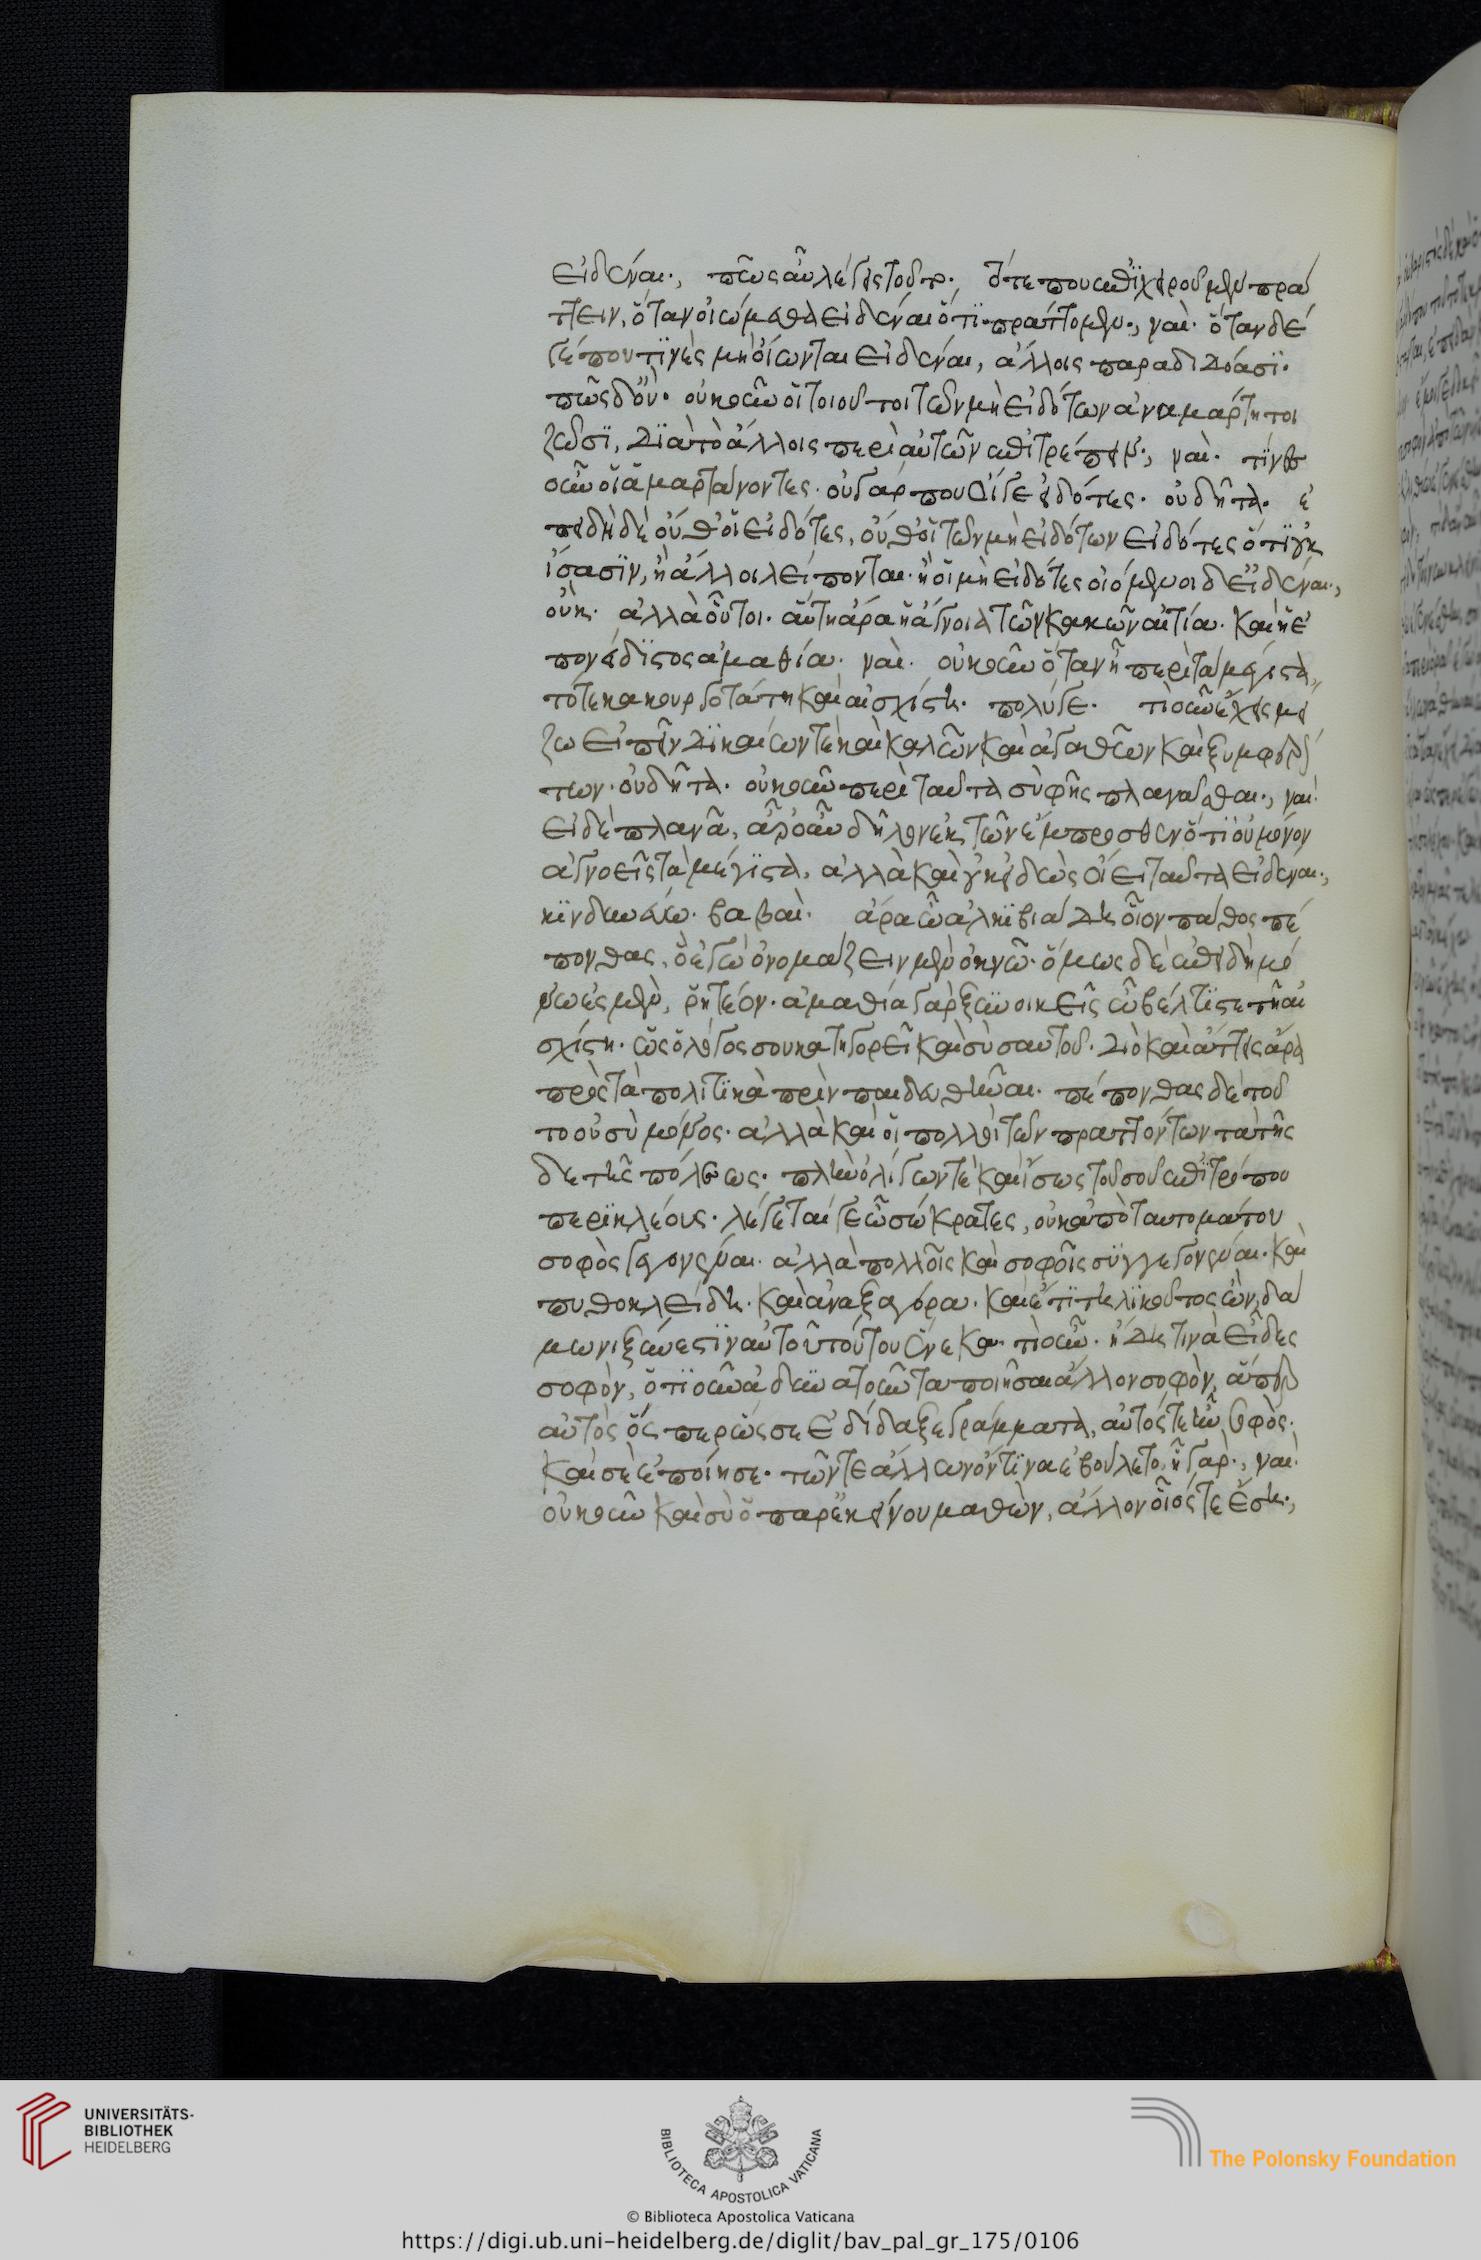 εἰδέναι., πῶς αὖ λέγεις τοῦτο. τότέ που ἐπιχειροῦμεν πρά
ττειν, ὅταν οἰώμεθα εἰδέναι ὅτι πράττομεν., ναί. ὅταν δέ
γέ που τινὲς μὴ οἴωνται εἰδέναι, ἄλλοις παραδιδόασι.
πῶς δ' οὔ. οὐκοῦν οἱ τοιοῦτοι τῶν μὴ εἰδότων ἀναμάρτητοι
ζῶσι, διὰ τὸ ἄλλοις περὶ αὐτῶν ἐπιτρέπειν., ναί. τίνες
οὖν οἱ ἁμαρτάνοντες. οὐ γάρ που οἵ γε εἰδότες. οὐ δῆτα. ἐ
πειδὴ δὲ οὔθ' οἱ εἰδότες, οὔθ' οἱ τῶν μὴ εἰδότων εἰδότες ὅτι οὐκ
ἴσασιν, ἢ ἄλλοι λείπονται. ἢ οἱ μὴ εἰδότες οἰόμενοι δ' εἰδέναι.,
οὔκ. ἀλλὰ οὗτοι. αὕτη ἄρα ἡ ἄγνοια τῶν κακῶν αἰτία. καὶ ἡ ἐ
πονείδιστος ἀμαθία. ναί. οὐκοῦν ὅταν ᾖ περὶ τὰ μέγιστα,
τότε κακουργοτάτη καὶ αἰσχίστη. πολύ γε. τί οὖν ἔχεις μεί
ζω εἰπεῖν δικαίων τε καὶ καλῶν καὶ ἀγαθῶν καὶ ξυμφερόν
των. οὐ δῆτα. οὐκοῦν περὶ ταῦτα σὺ φῂς πλανᾶσθαι., ναί.
εἰ δὲ πλανᾷ, ἆρ' οὖν δῆλον ἐκ τῶν ἔμπροσθεν ὅτι οὐ μόνον
ἀγνοεῖς τὰ μέγιστα, ἀλλὰ καὶ οὐκ εἰδὼς οἴει ταῦτα εἰδέναι.,
κινδυνεύω. βαβαί. ἆρα ὦ ἀλκιβιάδη οἷον πάθος πέ
πονθας, ὃ ἐγὼ ὀνομάζειν μὲν ὀκνῶ. ὅμως δὲ ἐπειδὴ μό
νω ἐσμὲν, ῥητέον. ἀμαθίᾳ γὰρ ξυνοικεῖς ὦ βέλτιστε τῇ αἰ
σχίστῃ. ὡς ὁ λόγος σου κατηγορεῖ καὶ σὺ σαυτοῦ. διὸ καὶ ἄττεις ἄρα
πρὸς τὰ πολιτικὰ πρὶν παιδευθῆναι. πέπονθας δὲ τοῦ
το οὐ σὺ μόνος. ἀλλὰ καὶ οἱ πολλοὶ τῶν πραττόντων τὰ τῆς
δε τῆς πόλεως. πλὴν ὀλίγων τε καὶ ἴσως τοῦ σοῦ ἐπιτρόπου
περικλέους. λέγεταί γε ὦ σώκρατες, οὐκ ἀπὸ ταυτομάτου
σοφὸς γεγονέναι. ἀλλὰ πολλοῖς καὶ σοφοῖς συγγεγονέναι. καὶ
πυθοκλείδῃ. καὶ ἀναξαγόρᾳ. καὶ ἔτι τηλικοῦτος ὢν δά
μωνι ξύνεστιν αὐτοῦ τούτου ἕνεκα. τί οὖν. ἤδη τινὰ εἶδες
σοφὸν, ὅτι οὖν ἀδυνατοῦντα ποιῆσαι ἄλλον σοφὸν, ἅπερ
αὐτὸς ὥς περ ὥς σε ἐδίδαξε γράμματα, αὐτός τε ἦν σοφὸς.
καὶ σὲ ἐποίησε. τῶν τε ἄλλων ὅντινα ἐβούλετο, ἦ γάρ., ναί.
οὐκοῦν καὶ σὺ ὁ παρ' ἐκείνου μαθὼν, ἄλλον οἷός τε ἔσῃ.,
UNIVERSITÄTS-
BIBLIOTHEK
HEIDELBERG
BIBLIOTECA APOSTOLICA VATICANA
The Polonsky Foundation
© Biblioteca Apostolica Vaticana
https://digi.ub.uni-heidelberg.de/diglit/bav_pal_gr_175/0106